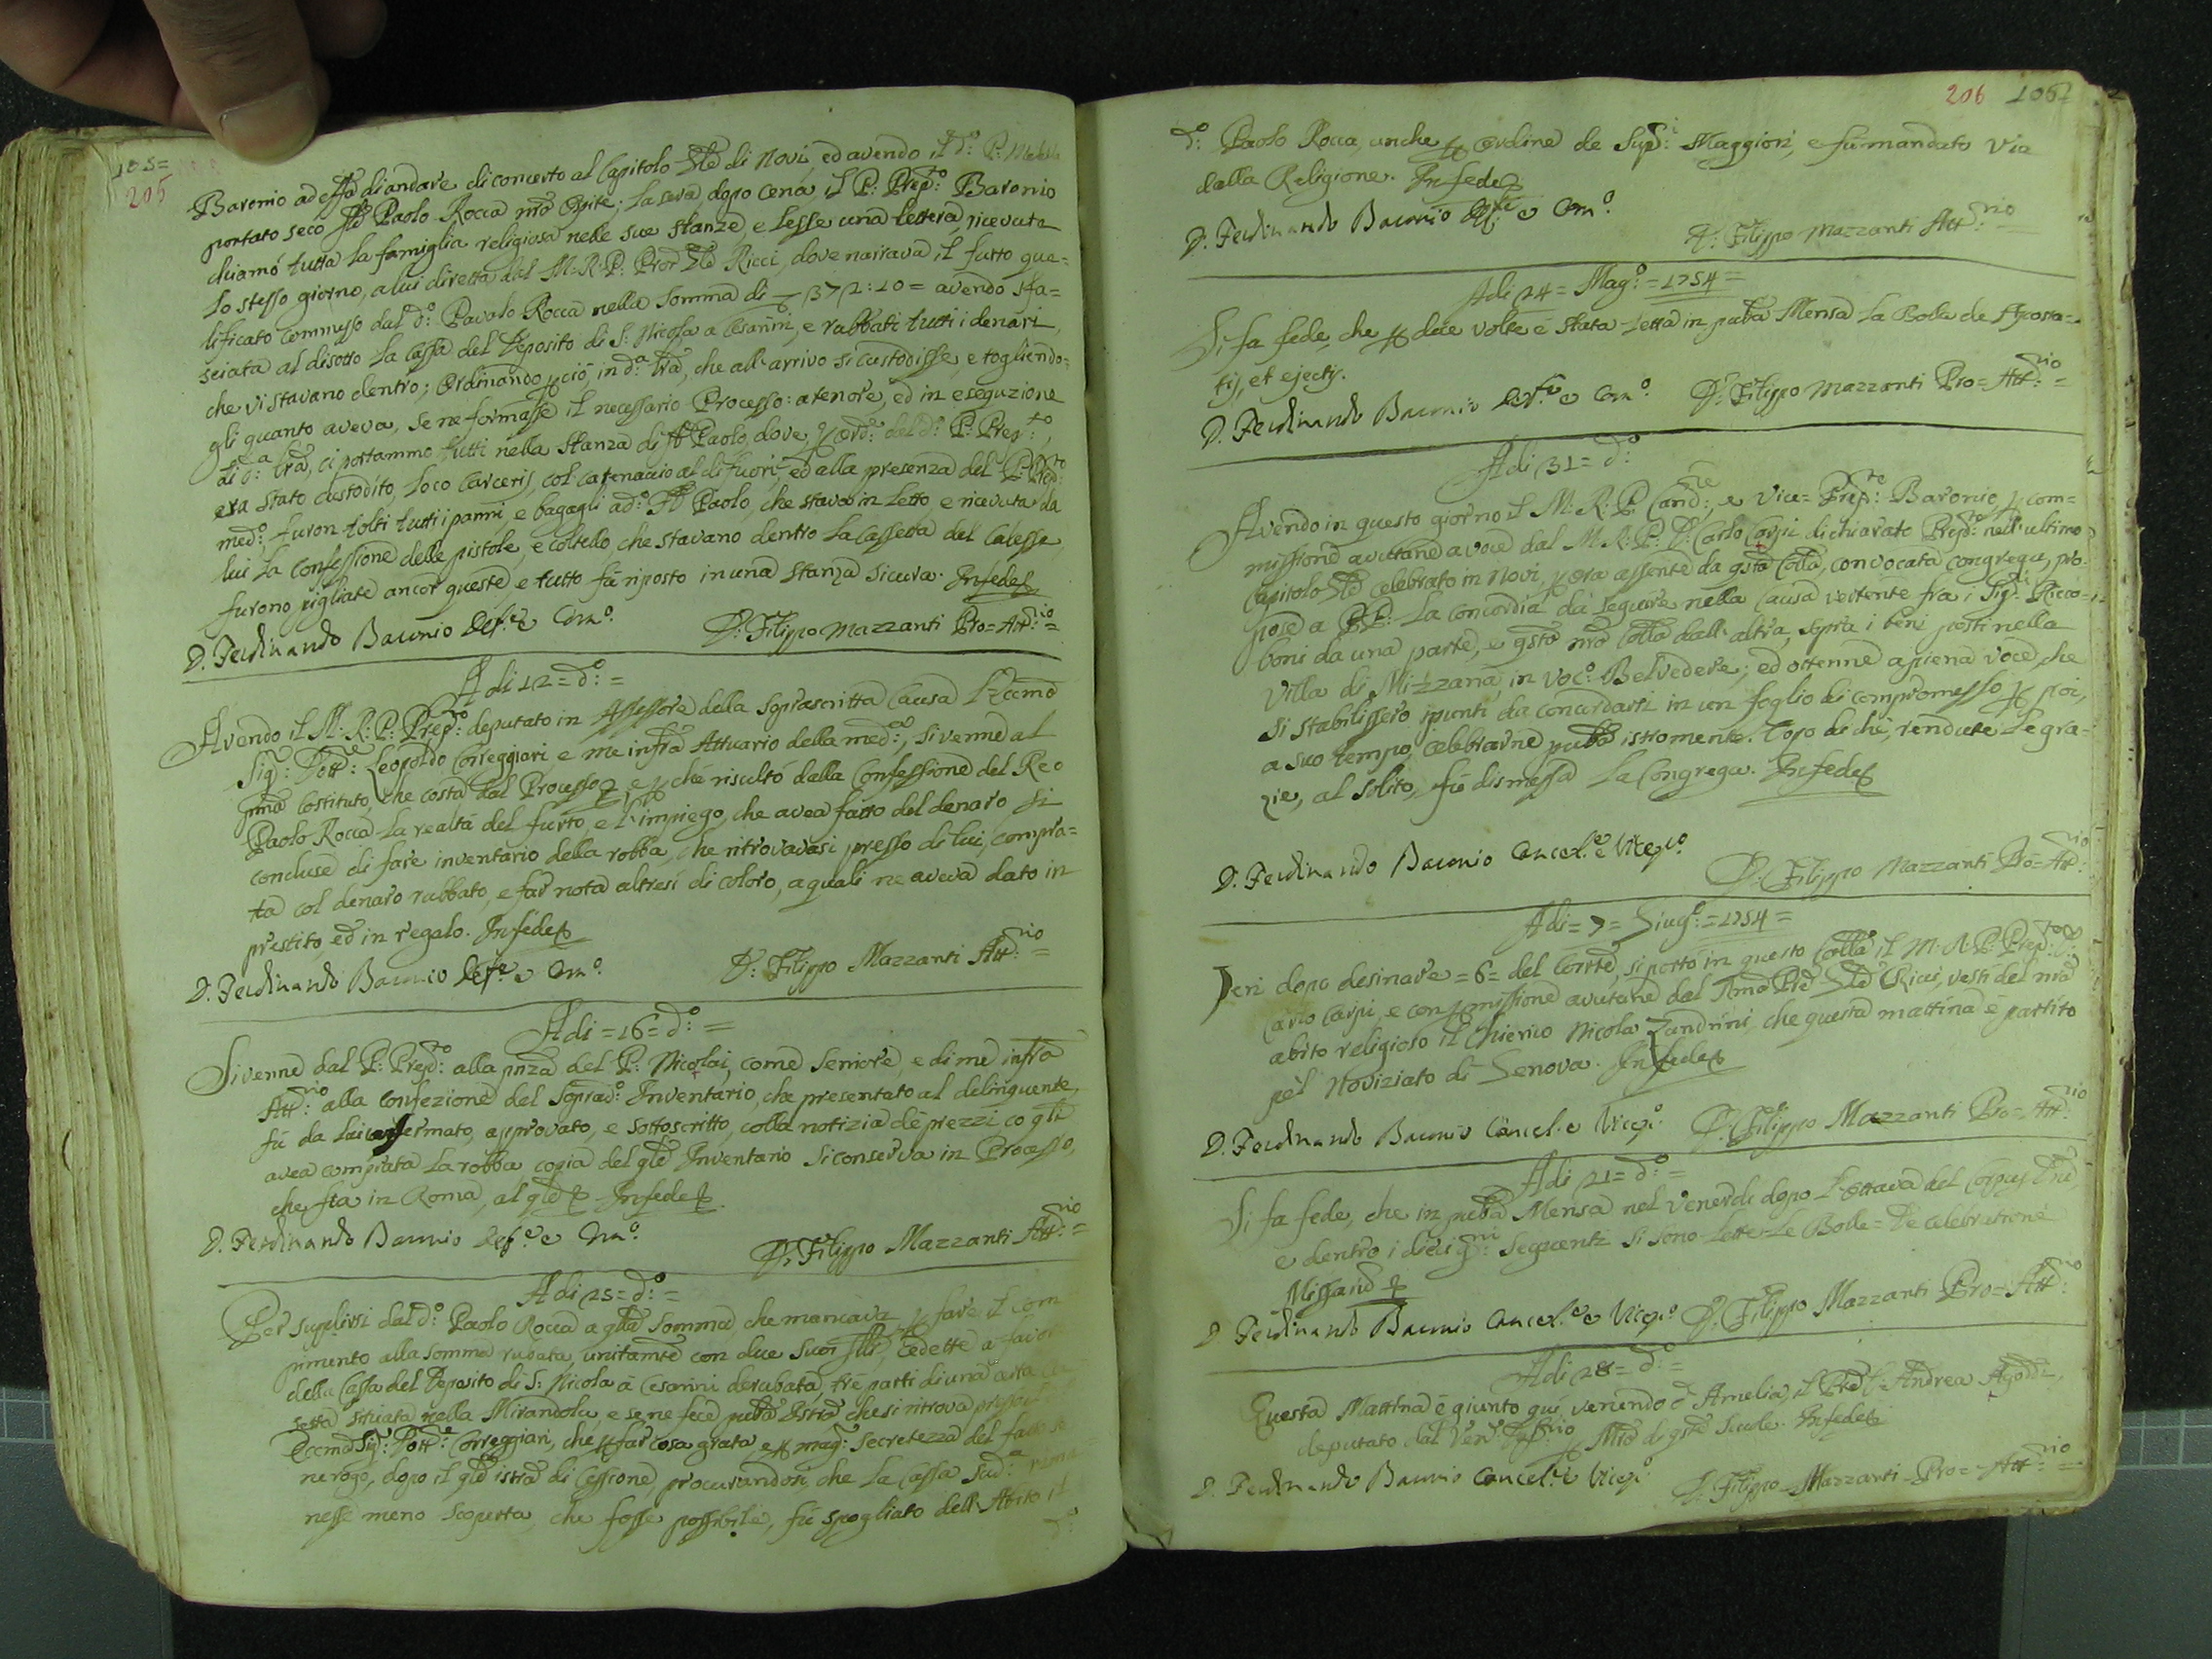 105=
205
Baronio ad effo di andare di concerto al Capitolo Gñle di Novi, ed avendo il do: P:
portato seco Fr Paolo Rocca nro Ospite; la sera, dopo cena, il P: Prepto: Baronio
chiamò tutta la famiglia religiosa nelle sue stanze, e lesse una lettera, ricevuta
lo stesso giorno, a lui diretta dal M: R: P: Pror Gñle Ricci, dove narrava il furto qua=
lificato commesso dal do: Pavolo Rocca nella somma di 1372:10= avendo sfa=
sciata al disotto la Cassa del Deposito di S: Nicola a Cesarini, e rabbati tutti i denari,
che vi stavano dentro; Ordinando perciò, in da: lra, che all'arrivo si custodisse, e togliendo=
gli quanto aveva, se ne formasse il necessario Processo: a tenore, ed in eseguzione
di da: lra, ci portammo tutti nella stanza di Fr Paolo, dove, per ord: del do: P: Prepto:,
era stato custodito, loco Carceris, col catenaccio al di fuori, ed alla presenza del P: Prepto
medo: furon tolti tutti i panni, e bagagli a do: Fr Paolo, che stava in letto, e ricevuta da
lui la confessione delle pistole, e coltello, che stavano dentro la cassetta del Calesse,
furono pigliate ancor queste, e tutto fù riposto in una stanza sicura. In fede
D. Ferdinando Baronio Def:e e Com:o
D: Filippo Mazzanti Pro=Attrio:=
Adi 12= do:=
Avendo il M: R: P: Prepto: deputato in Assessore della soprascritta Causa l'Eccmo
Sigr: Dottre: Leopoldo Correggiari e me infro Attuario della meda:, si venne al
primo Costituto, che costa dal Processo, e perchè risultò dalla Confessione del Reo
Paolo Rocca la realtà del furto, e l'impiego, che avea fatto del denaro si
concluse di fare inventario della robba, che ritrovavasi presso di lui, compra=
ta col denaro rubbato, e far nota altresì di coloro, a quali ne aveva dato in
prestito, ed in regalo. In fede
D. Ferdinando Baronio Def:e e Com:o
D: Filippo Mazzanti Attrio:=
Adi =16= do:=
Si venne dal P: Prepto: alla pnza del P: Nicolai, come Seniore, e di me infro
Attrio: alla confezione del Sopradto: Inventario, che presentato al delinquente,
fù da lui confermato, approvato, e sottoscritto, colla notizia de prezzi, co quali
avea comprata la robba copia del qle Inventario si conserva in Processo,
che sta in Roma, al qle In fede
D. Ferdinando Baronio Def:e e Com:o
D: Filippo Mazzanti Attrio:=
Adi 25= do:=
Per supplirsi dal do: Paolo Rocca a qlla somma, che mancava per fare il com
pimento alla somma rubata, unitamte con due suoi flli, Cedette a favor
della Cassa del Deposito di S: Nicola à Cesarini derubata, trè parti di una
setta situata nella Mirandola, e se ne fece pubco Istro che si ritrova presso
Eccmo Sigr: Dottre: Correggiari, che per far cosa grata e per magr: secretezza del fatto
ne rogò, dopo il qle istro di Cessione, procurandosi, che la Cassa suda:
nesse meno scoperta, che fosse possibile, fù spogliato dell'Abito il
do:
206 106
do: Paolo Rocca, anche per ordine de Supri: Maggiori, e fù mandato via
dalla Religione. In fede
D. Ferdinando Baronio Def:e e Com:o
D: Filippo Mazzanti Attrio:
Adi 24= Mago: =1754=
Si fa fede, che per due volte è stata letta in pubca Mensa la Bolla de Aposta=
tis, et ejectis.
D. Ferdinando Baronio Def:e e Com:o D: Filippo Mazzanti Pro=Attrio:=
Adi 31= do:
Avendo in questo giorno il M: R: P: Cancre:, e Vice=Prepto: Baronio, per com=
missione avutane a voce dal M: R: P: D: Carlo Carpi dichiarato Prepto: nell'ultimo
Capitolo Gñle celebrato in Novi, per ora assente da qsto Collo, convocata congrega, pro=
pose a PP: la concordia da seguire nella Causa vertente fra i Sigri: Ricco=
boni da una parte, e qsto nro Collo dall'altra, sopra i beni posti nella
Villa di Mizzana, in voco: Belvedere; ed ottenne a piena voce, che
si stabilissero i punti da concordarsi in un foglio di compromesso per poi,
a suo tempo, celebrarne pubco istromento. Dopo di che, rendute le gra=
zie, al solito, fù dismessa la Congrega. In fede
D. Ferdinando Baronio Cancel:e e Vicepo:
D: Filippo Mazzanti Pro=Attrio:
Adi =7= Giugo: =1754=
Jeri dopo desinare =6= del Corrte, si portò in questo Collo il M: R: P: Prepto: D:
Carlo Carpi, e con permissione avutane dal Rmo Pre Gñle Ricci, vestì del nro
abito religioso il Chierico Nicola Zandrini, che questa mattina è partito
pel Noviziato di Genova. In fede
D. Ferdinando Baronio Cancel:e e Vicepo: D: Filippo Mazzanti Pro=Attrio:
Adi 21= do:=
Si fa fede, che in pubca Mensa nel Venerdì dopo l'ottava del Corpus Dni,
e dentro i dieci gni: seguenti si sono lette le Bolle= De celebratione
Missarum
D. Ferdinando Baronio Cancel:e e Vicepo: D: Filippo Mazzanti Pro=Attrio:
Adi 28= do:=
Questa Mattina è giunto quì, venendo d'Amelia, il Pre D: Andrea
deputato dal Ven: Deffrio: per Mro di qste Scuole. In fede
D. Ferdinando Baronio Cancel:e e Vicepo: D: Filippo Mazzanti Pro=Attrio:=